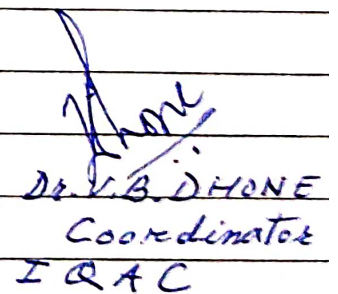 Dhone
Dr. V. B. DHONE
Coordinator
I Q A C